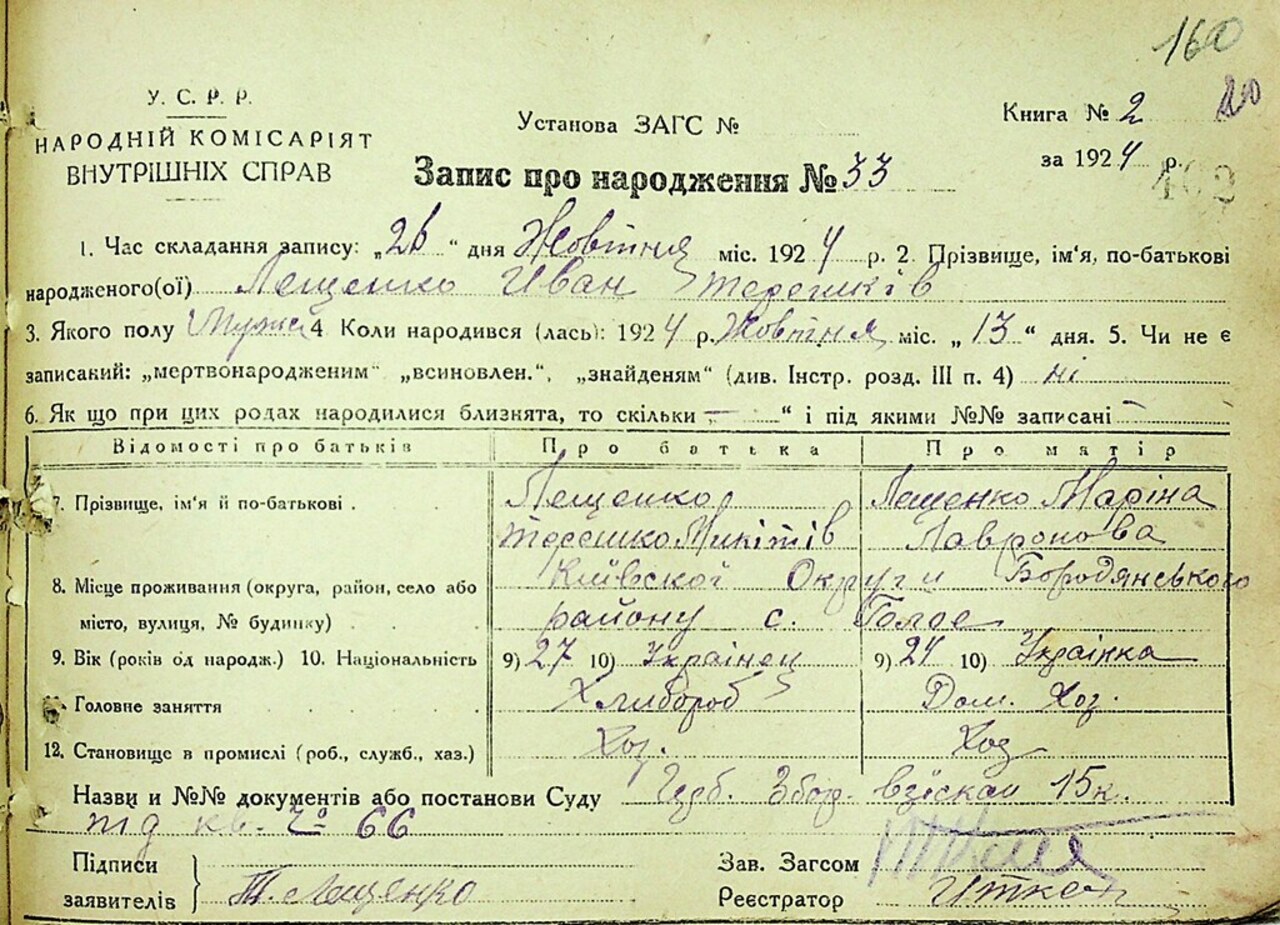 160
У. С. Р. Р.
НАРОДНІЙ КОМІСАРІЯТ
ВНУТРІШНІХ СПРАВ
Установа ЗАГС №
Книга № 2
20
за 1924 р.
402
Запис про народження № 33
1. Час складання запису: „26“ дня Жовтня міс. 1924 р. 2. Прізвище, ім'я, по-батькові
народженого(ої) Лещенко Иван Терешків
3. Якого полу 4 Коли народився (лась): 1924 р. Жовтня міс. „13“ дня. 5. Чи не є
записакий: „мертвонародженим“ „всиновлен.“, „знайденям“ (див. Інстр. розд. III п. 4) ні
6. Як що при цих родах народилися близнята, то скільки — “ і під якими №№ записані —
Відомості про батьків Про батька Про матір
7. Прізвище, ім'я й по-батькові . Лещенко Лещенко Маріна
Терешко Микітів Лавронова
8. Місце проживання (округа, район, село або Киівскої Округи Бородянського
місто, вулиця, № будинку) району с.
9. Вік (років од народж.) 10. Національність 9) 27 10) Украінец 9) 24 10) Украінка
11. Головне заняття Хлибороб Дом. Хоз.
12. Становище в промислі (роб., служб., хаз.) Хоз. Хоз
Назви и №№ документів або постанови Суду Збор. взіскан 15к.
кв. № 66
Підписи
заявителів Т. Лещенко
Зав. Загсом
Реєстратор